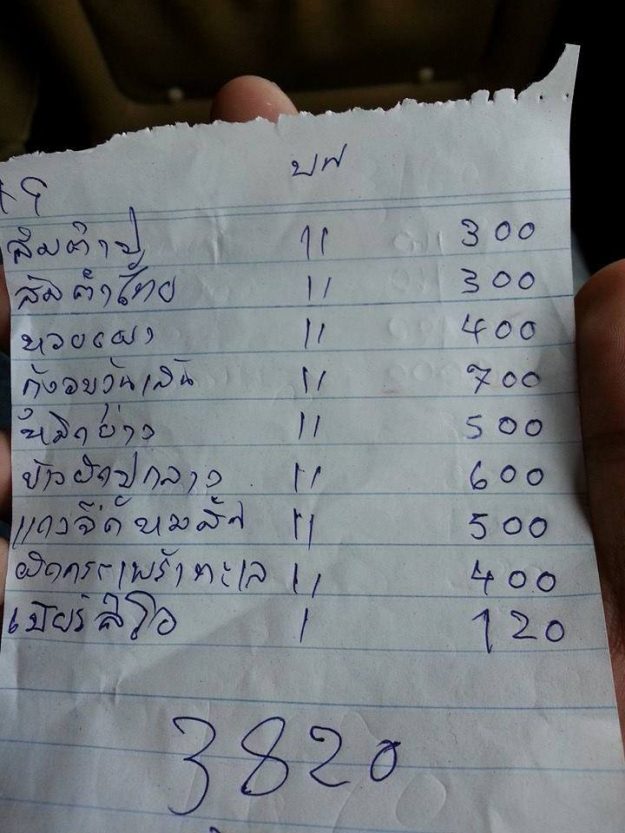 ส้มตำปู 11 300
ส้มตำไทย 11 300
หอยเผา 11 400
กุ้งอบวุ้นเส้น 11 700
หมึกย่าง 11 500
ข้าวผัดปูกลาง 11 600
แกงจืดหมูสับ 11 500
ผัดกระเพราทะเล 11 400
เบียร์ลีโอ 1 120
3820